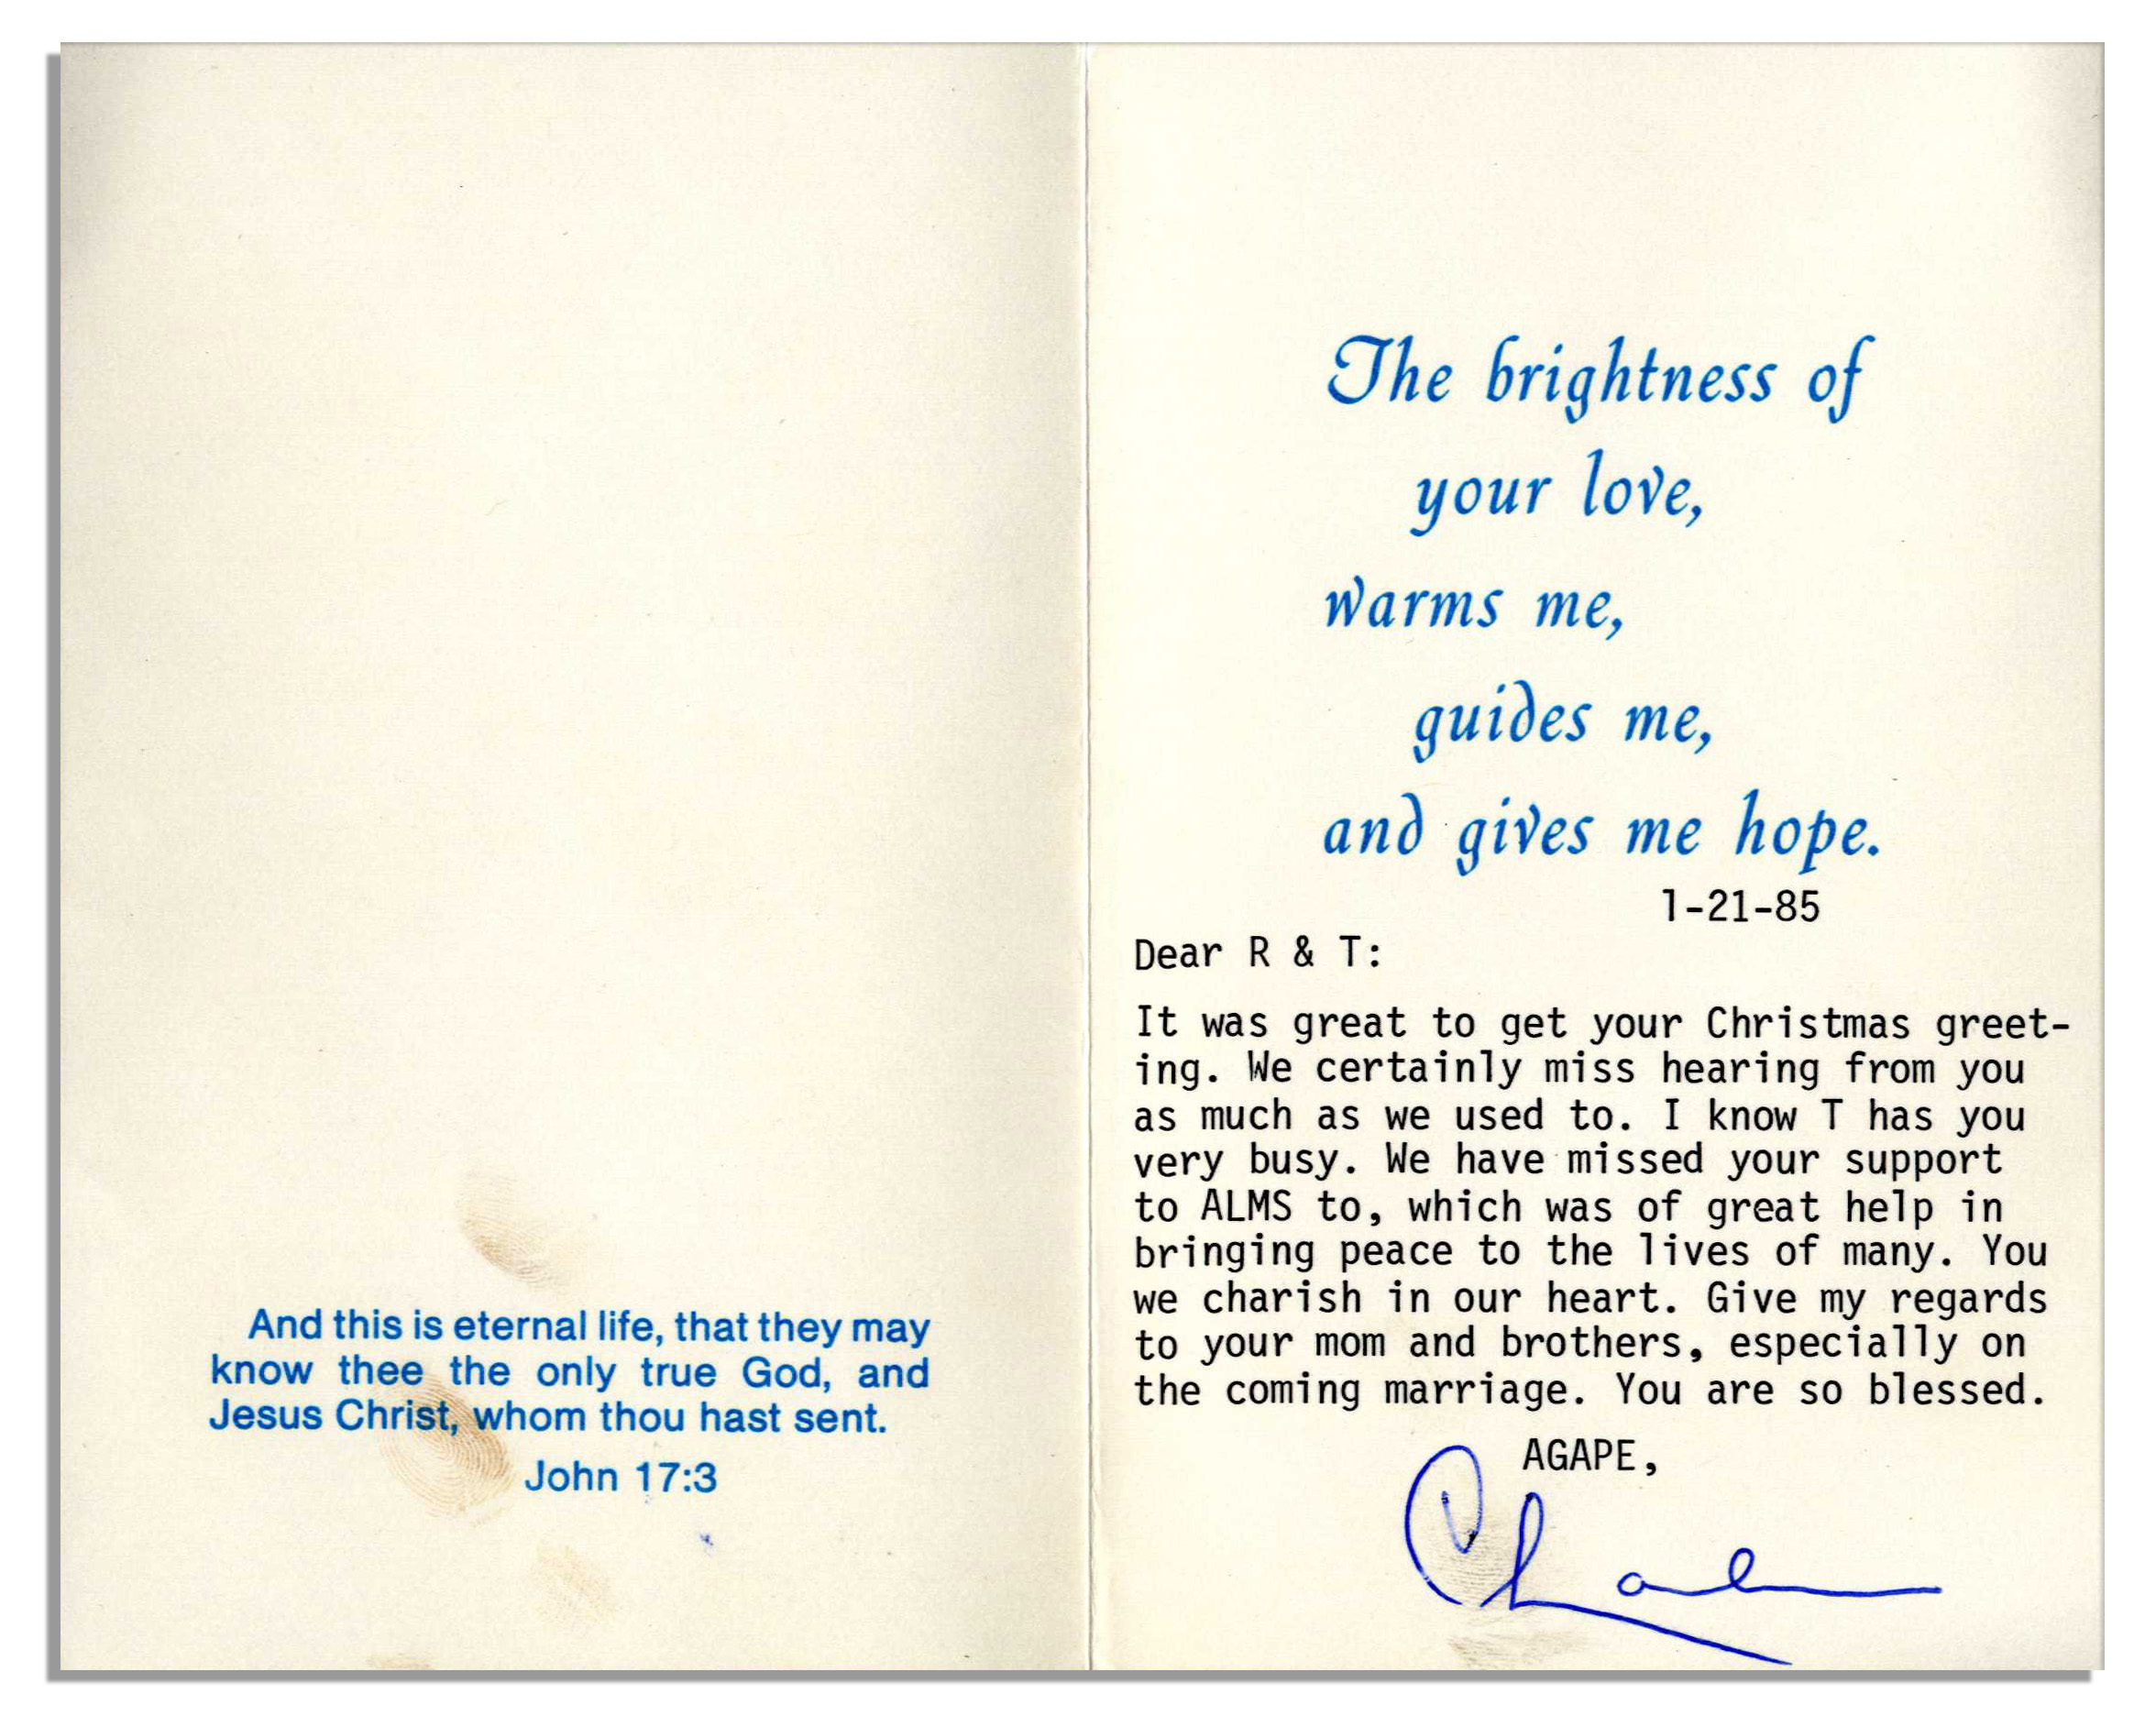 And this is eternal life, that they may
know thee the only true God, and
Jesus Christ, whom thou hast sent.
John 17:3
The brightness of
your love,
warms me,
guides me,
and gives me hope.
1-21-85
Dear R & T:
It was great to get your Christmas greet-
ing. We certainly miss hearing from you
as much as we used to. I know T has you
very busy. We have missed your support
to ALMS to, which was of great help in
bringing peace to the lives of many. You
we charish in our heart. Give my regards
to your mom and brothers, especially on
the coming marriage. You are so blessed.
AGAPE,